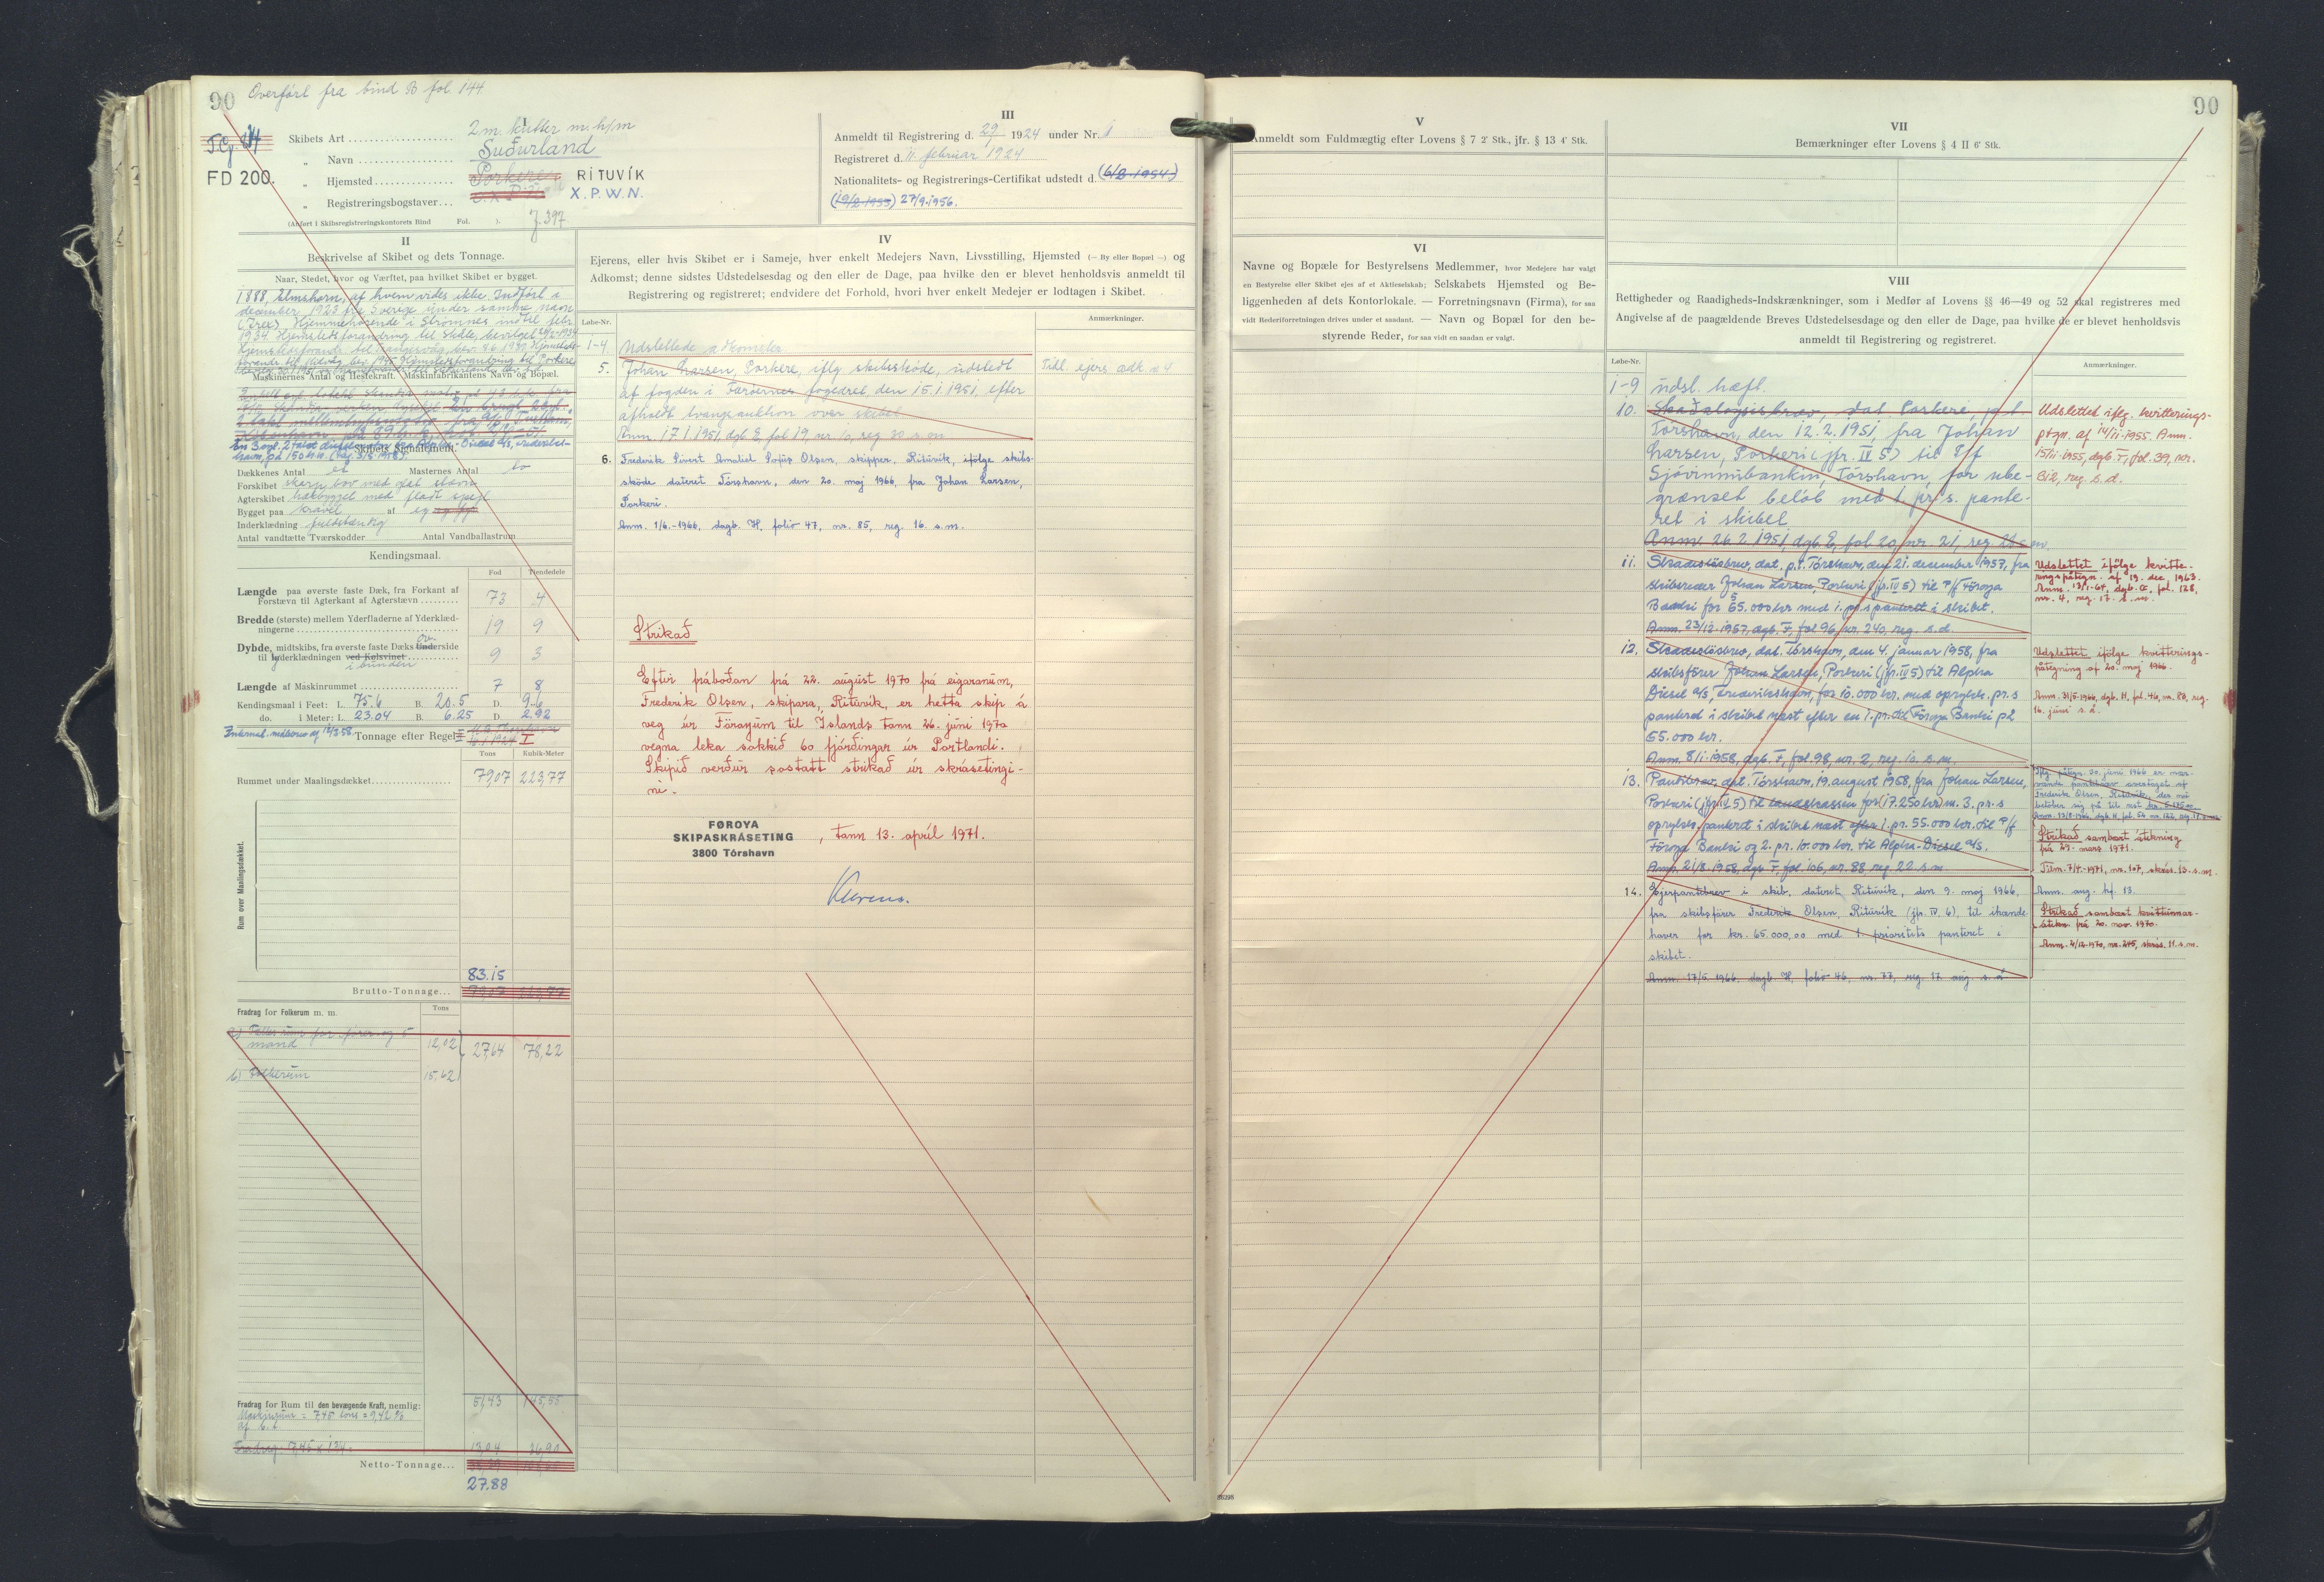 90 Overført fra bind B fol. 144
TG
FD 200.
I
Skibets Art 2 m. kutter m. hj/m
„ Navn Suðurland
„ Hjemsted Porkere RITUVÍK
„ Registreringsbogstaver X.P.W.N.
(Anført i Skibsregistreringskontorets Bind Fol. ).
II
Beskrivelse af Skibet og dets Tonnage.
Naar, Stedet, hvor og Værftet, paa hvilket Skibet er bygget.
1888, Elmshorn, af hvem vides ikke. Indført i
december 1923 fra Sverige under samme navn
Maskinernes Antal og Hestekraft. Maskinfabrikantens Navn og Bopæl.
Skibets Signalement.
Dækkenes Antal et Masternes Antal to
Forskibet skarp bov med glat stævn
Agterskibet hækbygget med fladt spejl
Bygget paa kravel af eg
Inderklædning fuldstændig
Antal vandtætte Tværskodder Antal Vandballastrum
Kendingsmaal.
Fod Tiendedele
Længde paa øverste faste Dæk, fra Forkant af
Forstævn til Agterkant af Agterstævn 73 4
Bredde (største) mellem Yderfladerne af Yderklæd-
ningerne 19 9
Dybde, midtskibs, fra øverste faste Dæks Underside
til Yderklædningen ved Kølsvinet i bunden 9 3
Længde af Maskinrummet 7 8
Kendingsmaal i Feet: L. 75.6 B. 20.5 D. 9.6
do. i Meter: L. 23.04 B. 6.25 D. 2.92
Tonnage efter Regel I
Tons Kubik-Meter
Rummet under Maalingsdækket 79,07 223,77
Rum over Maalingsdækket.
83.15
Brutto-Tonnage 79,07 223,77
Fradrag for Folkerum m. m. Tons
a) Fælles rum for fører og 5
mand 12,02 27,64 78,22
b) Folkerum 15,62
Fradrag for Rum til den bevægende Kraft, nemlig: 51,43 145,55
Maskinrum = 7,45 tons = 9,42 %
af b. t.
Fradrag: 7,45 x 1 3/4 = 13,04 36,90
Netto-Tonnage
27.88
III
Anmeldt til Registrering d. 29/1 1924 under Nr. 1
Registreret d. 11. februar 1924
Nationalitets- og Registrerings-Certifikat udstedt d. (6/2-1954)
(19/2-1955) 27/9-1956.
IV
Ejerens, eller hvis Skibet er i Sameje, hver enkelt Medejers Navn, Livsstilling, Hjemsted (— By eller Bopæl —) og
Adkomst; denne sidstes Udstedelsesdag og den eller de Dage, paa hvilke den er blevet henholdsvis anmeldt til
Registrering og registreret; endvidere det Forhold, hvori hver enkelt Medejer er lodtagen i Skibet.
Løbe-Nr. Anmærkninger.
1-4 Udslettede adkomster
5. Johan Larsen, Porkere, iflg. skibsskøde, udstedt Tidl. ejers adk. n 4
af fogden i Færøernes fogedret den 15.1.1951, efter
afholdt tvangsauktion over skibet
Anm. 17.1.1951, dgb. E, fol 19, nr 10, reg 20 s.m.
6. Frederik Sivert Amaliel Sofus Olsen, skipper, Rituvik, ifølge skibs-
skøde dateret Tórshavn, den 20. maj 1966, fra Johan Larsen,
Porkeri.
Anm. 1/6.-1966, dagb. H, folio 47, nr. 85, reg. 16. s.m.
Strikað
Eftir fráboðan frá 22. august 1970 frá eigaranum,
Frederik Olsen, skipara, Rituvik, er hetta skip á
veg úr Føroyum til Íslands tann 26. juni 1970
vegna leka sokkið 60 fjórðingar úr Portlandi.
Skipið verður sostatt strikað úr skrásetingi-
ni.
FØROYA
SKIPASKRÁSETING
3800 Tórshavn
, tann 13. apríl 1971.
V
Anmeldt som Fuldmægtig efter Lovens § 7 2' Stk., jfr. § 13 4' Stk.
VI
Navne og Bopæle for Bestyrelsens Medlemmer, hvor Medejere har valgt
en Bestyrelse eller Skibet ejes af et Aktieselskab; Selskabets Hjemsted og Be-
liggenheden af dets Kontorlokale. — Forretningsnavn (Firma), for saa
vidt Rederiforretningen drives under et saadant. — Navn og Bopæl for den be-
styrende Reder, for saa vidt en saadan er valgt.
90
VII
Bemærkninger efter Lovens § 4 II 6' Stk.
VIII
Rettigheder og Raadigheds-Indskrænkninger, som i Medfør af Lovens §§ 46—49 og 52 skal registreres med
Angivelse af de paagældende Breves Udstedelsesdage og den eller de Dage, paa hvilke de er blevet henholdsvis
anmeldt til Registrering og registreret.
Løbe-Nr. Anmærkninger.
1-9 udsl. hæft.
10. Skadesløsbrev, dat. Porkere, p.t.
Tórshavn, den 12.2.1951, fra Johan
Larsen, Porkeri (jfr. IV 5) til P/f
Sjóvinnubankin, Tórshavn, for ube-
grænset beløb med 1. pr. s. pante-
ret i skibet
Anm. 26.2.1951, dgb. E, fol. 20, nr. 21, reg.
Udslettet iflg. kvitterings-
ptgn. af 14/11-1955. Anm.
15/11-1955, dgb. F, fol. 39, nr.
312, reg. s.d.
11. Skadesløsbrev, dat. p.t. Tórshavn, den 21. december 1957, fra
skibsreder Johan Larsen, Porkeri (jfr. IV 5) til P/f Føroya
Banki for 55.000 kr. med 1. pr. s. panteret i skibet.
Anm. 23/12-1957, dgb. F, fol 96, nr. 240, reg. s.d.
Udslettet ifølge kvitte-
ringspåtegn. af 19. dec. 1963.
Anm. 13/1-64, dgb. G, fol. 128,
nr. 4, reg. 17. s.m.
12. Skadesløsbrev, dat. Tórshavn, den 4. januar 1958, fra
skibsfører Johan Larsen, Porkeri (jfr. IV 5) til Alpha
Diesel a/s, Frederikshavn, for 10.000 kr. med oprykk. pr. s
panteret i skibet næst efter en 1. pr. til Føroya Banki på
55.000 kr.
Anm. 8/1-1958, dgb. F, fol. 98, nr. 2, reg. 10. s.m.
Udslettet ifølge kvitterings-
påtegning af 20. maj 1966.
Anm. 31/5-1966, dgb. H, fol. 46, nr. 80, reg.
16. juni s.å.
13. Pantebrev, dat. Tórshavn, 19. august 1958, fra Johan Larsen,
Porkeri (jfr. IV 5) til landskassen for (17.250 kr) m. 3. pr. s
oprykk. panteret i skibet næst efter 1. pr. 55.000 kr. til P/f
Føroya Banki og 2. pr. 10.000 kr. til Alpha-Diesel a/s.
Anm. 21/8-1958, dgb. F, fol. 106, nr. 88, reg. 22. s.m.
Strikað sambært átekning
frá 29. mars 1971.
Tilm. 7/4-1971, nr. 107, skrás. 13. s.m.
14. Ejerpantebrev i skib, dateret Rituvik, den 9. maj 1966,
fra skibsfører Frederik Olsen, Rituvik (jfr. IV, 6), til ihænde-
haver for kr. 65.000,00 med 1. prioritets panteret i
skibet.
Anm. 17/5 1966. dagb. H, folio 46, nr. 77, reg. 17. aug. s.å
Anm. aug. hf. 13.
Strikað sambært kvittunnar-
átekn. frá 20. nov. 1970.
Anm. 4/12-1970, nr. 245, skrás. 11. s.m.